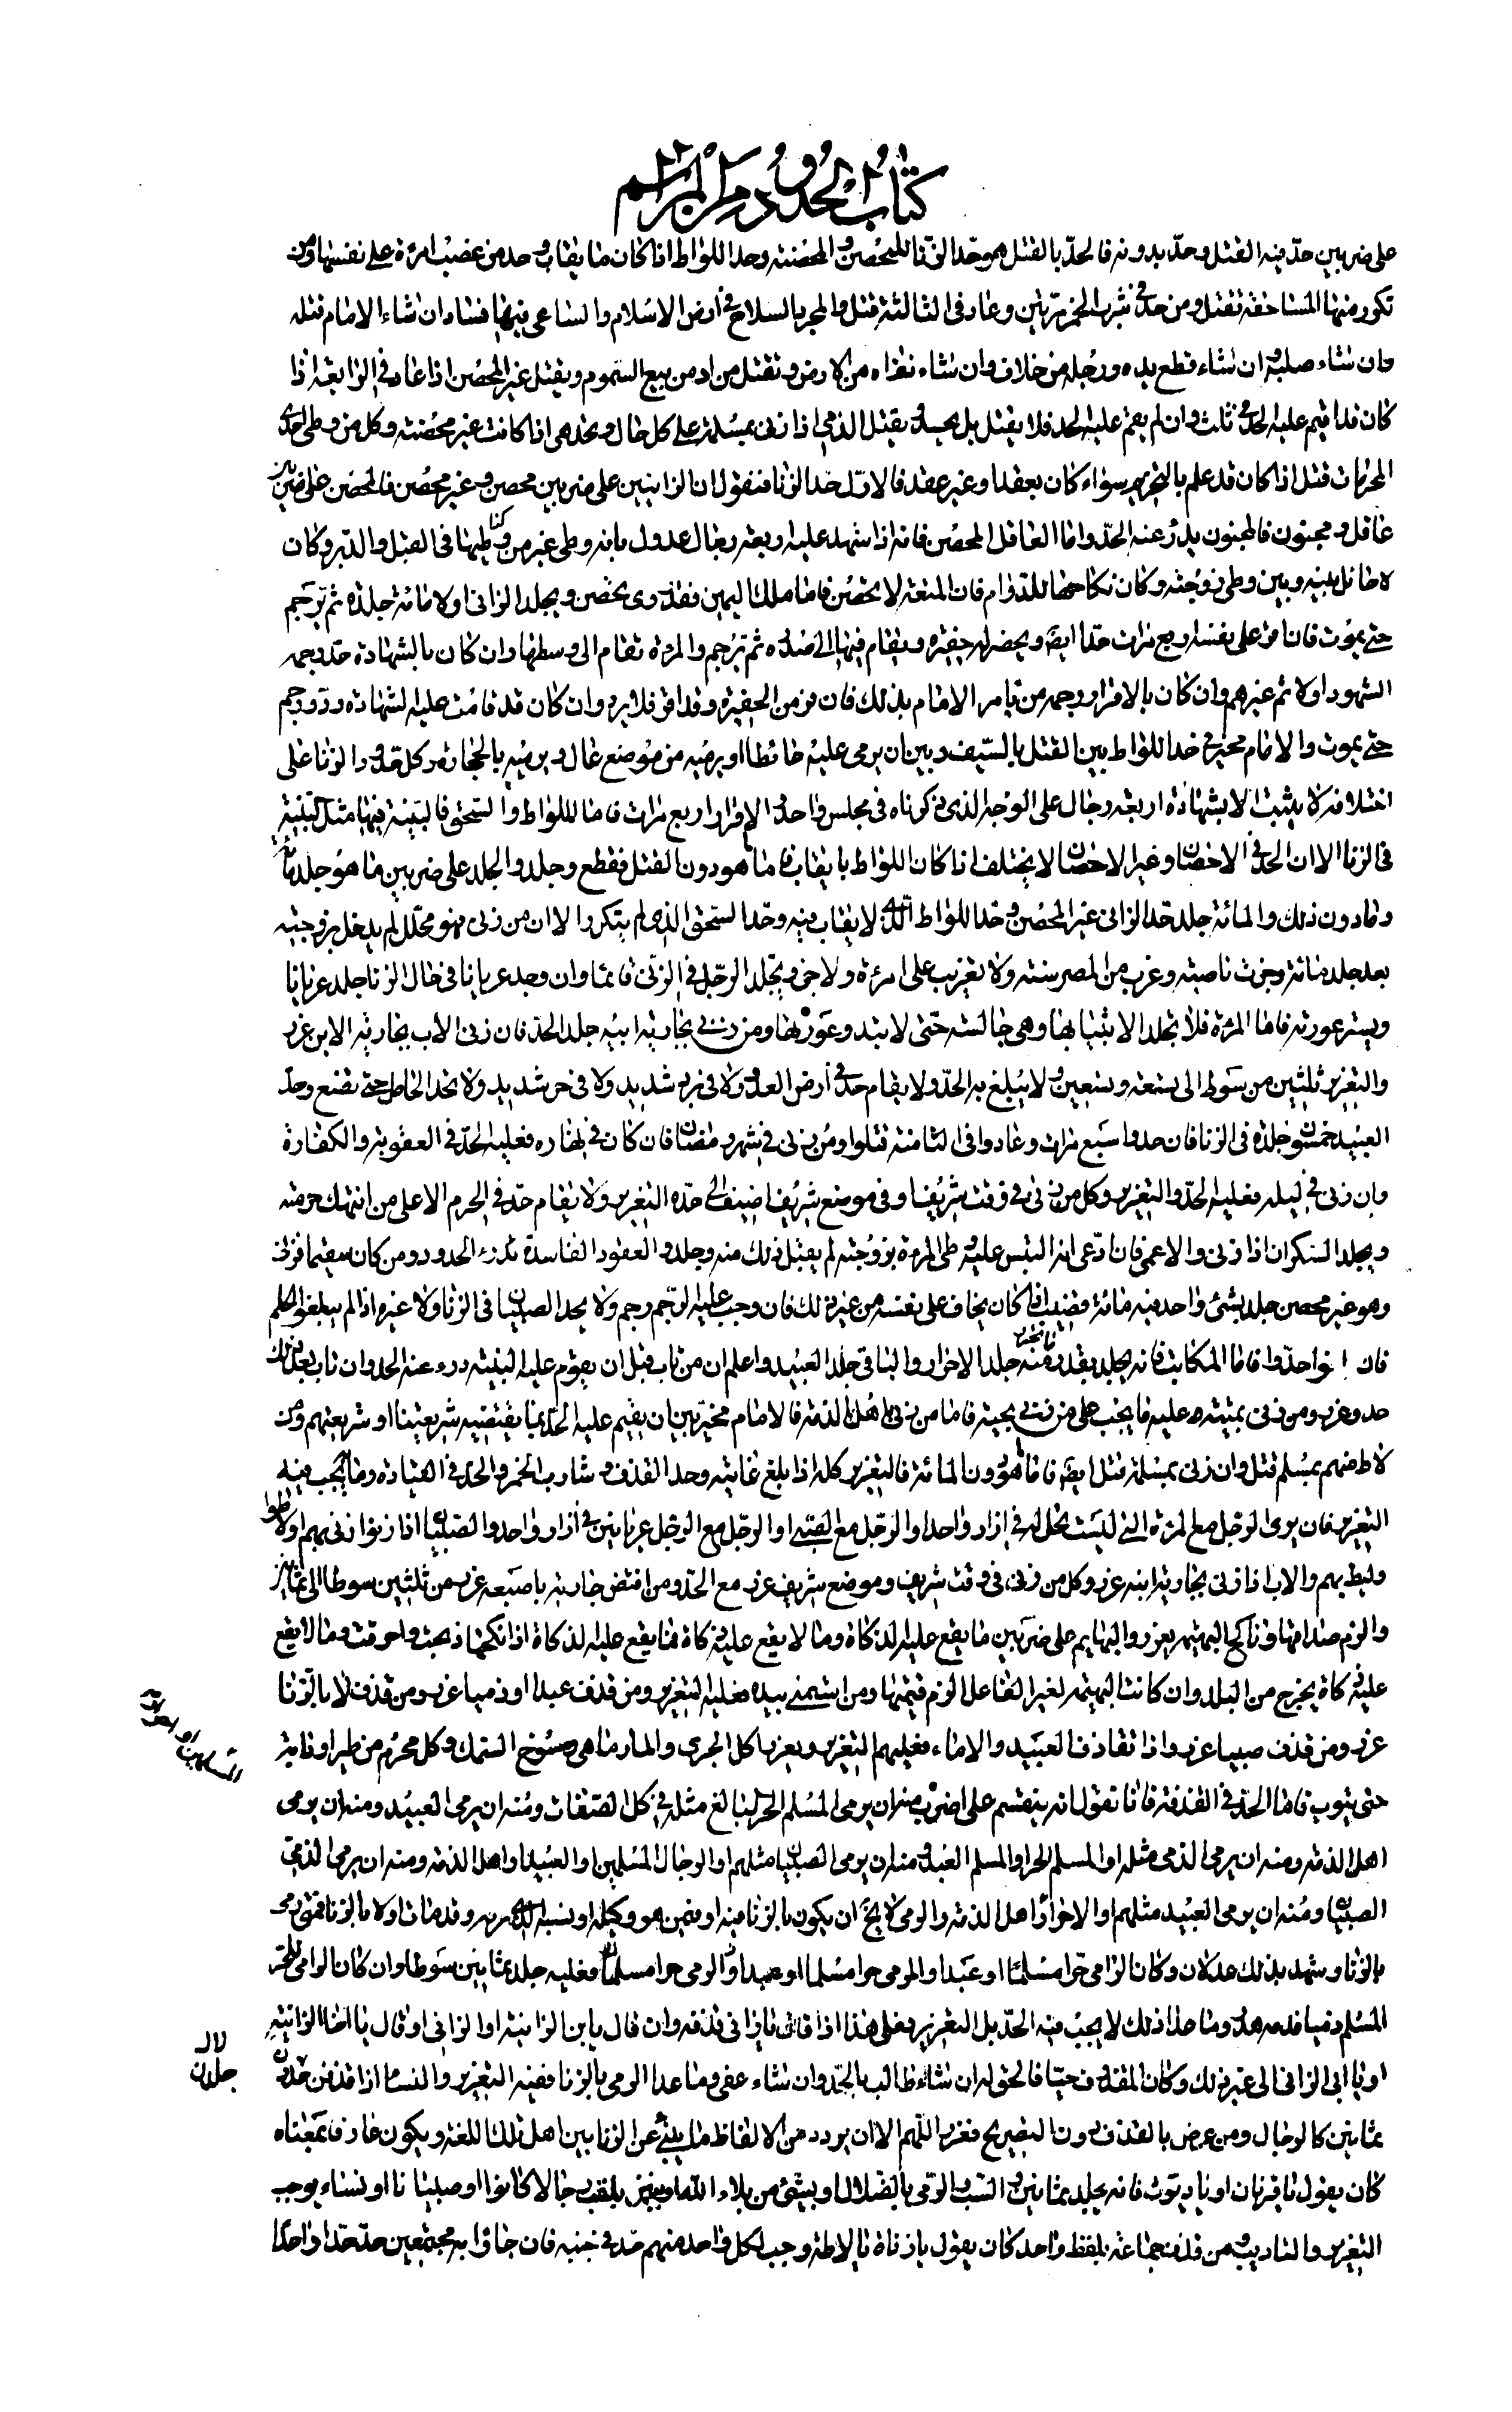 كتاب الحدود من المراسم
على ضربين حد فيه القتل وحد بدونه فالحد بالقتل هو حد الزنا للمحصن والمحصنة وحد اللواط اذا كان ما يقاب وحد من غصب امرءة على نفسها ومن
تكرر منها المساحقة فتقتل ومن حد في شرب الخمر مرتين وعاد في الثالثة قتل والمجرد بالسلاح في ارض الاسلام والساعى فيها فسادا ان شاء الامام قتله
وان شاء صلبه وان شاء قطع يده ورجله من خلاف وان شاء نفاه من الارض وتقتل من ادمن بيع السموم ويقتل غير المحصن اذا عاد في الرابعة اذا
كان قد اقيم عليه الحد في ثلث وان لم يقم عليه الحد فلا يقتل بل يحد ويقتل الذمي اذا زنى بمسلمة على كل حال ويحد هى اذا كانت غير محصنة وكل من وطى احدى
المحرمات قتل اذا كان قد علم بالتحريم سواء كان بعقد او غير عقد فالاول حد الزنا فنقول ان الزانيين على ضربين محصن وغير محصن فالمحصن على ضربين
عاقل ومجنون فالمجنون يدرء عنه الحد واما العاقل المحصن فانه اذا شهد عليه اربعة رجال عدول بانه وطى غير من وطيها في القبل والدبر وكان
لا حائل بينه وبين وطى زوجته وكان نكاحها للدوام فان المتعة لا تحصن فاما ملك اليمين فقد روى يحصن ويجلد الزانى اولا مائة جلدة ثم يرجم
حتى يموت فان اقر على نفسه اربع مرات حد ايضا ويحضر له حفيرة ويقام فيها الى صدره ثم يرجم والمرءة تقام الى وسطها وان كان بالشهادة حد رجمه
الشهود اولا ثم غيرهم وان كان بالاقرار رجمه من يامر الامام بذلك فان فر من الحفيرة وقد اقر فلا يرد وان كان قد قامت عليه الشهادة رد ورجم
حتى يموت والامام مخير في حد اللواط بين القتل بالسيف وبين ان يرمى عليه حائطا او يرميه من موضع عال ويرميه بالحجارة وكل حدود الزنا على
اختلافه لا يثبت الا بشهادة اربعة رجال على الوجه الذى ذكرناه في مجلس واحد او الاقرار اربع مرات فاما اللواط والسحق فالبينة فيها مثل البينة
في الزنا الا ان الحد في الاحصان وغير الاحصان لا يختلف اذا كان اللواط بايقاب فاما ما هو دون القتل فقطع وجلد والجلد على ضربين ما هو جلد مائة
وما دون ذلك والمائة جلد حد الزانى غير المحصن وحد اللواط الذى لا يقاب فيه وحد السحق الذى لم يتكرر الا ان من زنى وهو محلل لم يدخل بزوجته
بعد جلد مائة وجزت ناصيته وغرب من المصر سنة ولا تغريب على امرءة ولا جز ويجلد الرجل في الزنى قائما وان وجد عريانا في حال الزنا جلد عريانا
ويستر عورته فاما المرءة فلا تجلد الا بثيابها وهى جالسة حتى لا تبدو عورتها ومن زنى بجارية ابيه جلد الحد فان زنى الاب بجارية الابن عزر
والتعزير ثلثين من سوط الى تسعة وتسعين ولا يبلغ به الحد ولا يقام حد في ارض العدو ولا في برد شديد ولا في حر شديد ولا تحد الحامل حتى تضع وحد
العبيد خمسون جلدة في الزنا فان حدوا سبع مرات وعادوا في الثامنة قتلوا ومن زنى في شهر رمضان فان كان في نهاره فعليه الحد في العقوبة والكفارة
وان زنى في ليله فعليه الحد والتعزير وكل من زنى في وقت شريف او في موضع شريف اضيف الى حده التعزير ولا يقام حد في الحرم الا على من انتهك حرمته
ويجلد السكران اذا زنى والاعمى فان ادعى انه التبس عليه وطى المرءة بزوجته لم يقبل ذلك منه وجلد والعقود الفاسدة تدرء الحدود ومن كان سقيما فزنى
وهو غير محصن جلد بشئ واحد فيه مائة قضيب اذا كان يخاف على نفسه من غير ذلك فان وجب عليه الرجم رجم ولا يحد الصبيان في الزنا ولا غيره اذا لم يبلغوا الحلم
فان نواحدوا فاما المكاتب فانه يجلد بقدر ما تحرر منه جلد الاحرار والباقى جلد العبيد واعلم ان من تاب قبل ان يقوم عليه البينة درء عنه الحد وان تاب بعد ذلك
حد وعزر ومن زنى بميتة فعليه ما يجب على من زنى بحية فاما من زنى من اهل الذمة فالامام مخير بين ان يقيم عليه الحد بما يقتضيه شريعتنا او شريعتهم ومن
لاط منهم بمسلم قتل وان زنى بمسلمة قتل ايضا فاما ما هو دون المائة فالتعزير كله اذا بلغ غايته وحد القذف وشارب الخمر والحد في القيادة وما يجب فيه
التعزير فان يوى الرجل مع المرءة التى ليست تحل له في ازار واحد او الرجل مع الصبى او الرجل مع الرجل عريانين في ازار واحد والصبيان اذا زنوا او زنى بهم او لاطوا
وليط بهم والاب اذا زنى بجارية ابنه عزر وكل من زنى في وقت شريف وموضع شريف عزر مع الحد ومن افتض جارية باصبعه عزر من ثلثين سوطا الى ثمانين
والزم صداقها وناكح البهيمة يعزر والبهايم على ضربين ما يقع عليه الذكاة وما لا يقع عليه ذكاة فما يقع عليه الذكاة اذا نكحها ذبحت واحرقت وما لا يقع
عليه ذكاة يخرج من البلد وان كانت البهيمة لغير الفاعل الزم قيمتها ومن استمنى بيده فعليه التعزير ومن قذف عبدا او ذميا عزر ومن قذف لا بالزنا
عزر ومن قذف صبيا عزر واذا تقاذف العبيد والاماء فعليهم التعزير ويعزر اكل الجرى والمارماهى ومسوخ السمك وكل محرم من طير او دابة
حتى يتوب فاما الحد في القذفة فانا نقول انه ينقسم على اضرب منه ان يرمى المسلم الحر البالغ مثله في كل الصفات ومنه ان يرمى العبيد ومنه ان يرمى
اهل الذمة ومنه ان يرمى الذمى مثله او المسلم الحر او المسلم العبد ومنه ان يرمى الصبيان مثلهم او الرجال المسلمين او العبيد او اهل الذمة ومنه ان يرمى الذمى
الصبيان ومنه ان يرمى العبيد مثلهم او الاحرار او اهل الذمة والرمى لا يخ ان يكون بالزنا فيه او فيمن هو وكيله او نسبه اليه وقد مات اولا بالزنا فمتى رمى
بالزنا وشهد بذلك عدلان وكان الرامى حرا مسلما او عبدا والمرمى حرا مسلما فعليه جلد ثمانين سوطا وان كان الرامى للحر
المسلم ذميا وما عدا ذلك لا يجب فيه الحد بل التعزير فعلى هذا اذا قال يا زانى قذفه وان قال يا ابن الزانية او الزانى او قال يا اخا الزانية
او يا ابى الزانى الى غير ذلك وكان المقذوف حيا فالحق له ان شاء طالب بالحد وان شاء عفى وما عدا الرمى بالزنا ففيه التعزير والنساء اذا قذفن جلدن
ثمانين كالرجال ومن عرض بالقذف دون التصريح عزر اللهم الا ان يورد من الالفاظ ما ينبئ عن الزنا بين اهل تلك اللغة ويكون عارفا بمعناه
كان يقول يا قرنان او يا ديوث فانه يجلد ثمانين والسب والرمى بالضلال او بشئ من بلاء الله او ينبز بلقب رجالا كانوا او صبيانا او نساء يوجب
التعزير والتاديب ومن قذف جماعة بلفظ واحد كان يقول يا زناة يا لاطة وجب لكل واحد منهم حد في جنبه فان جاؤا به مجتمعين حد حدا واحدا
جلدن